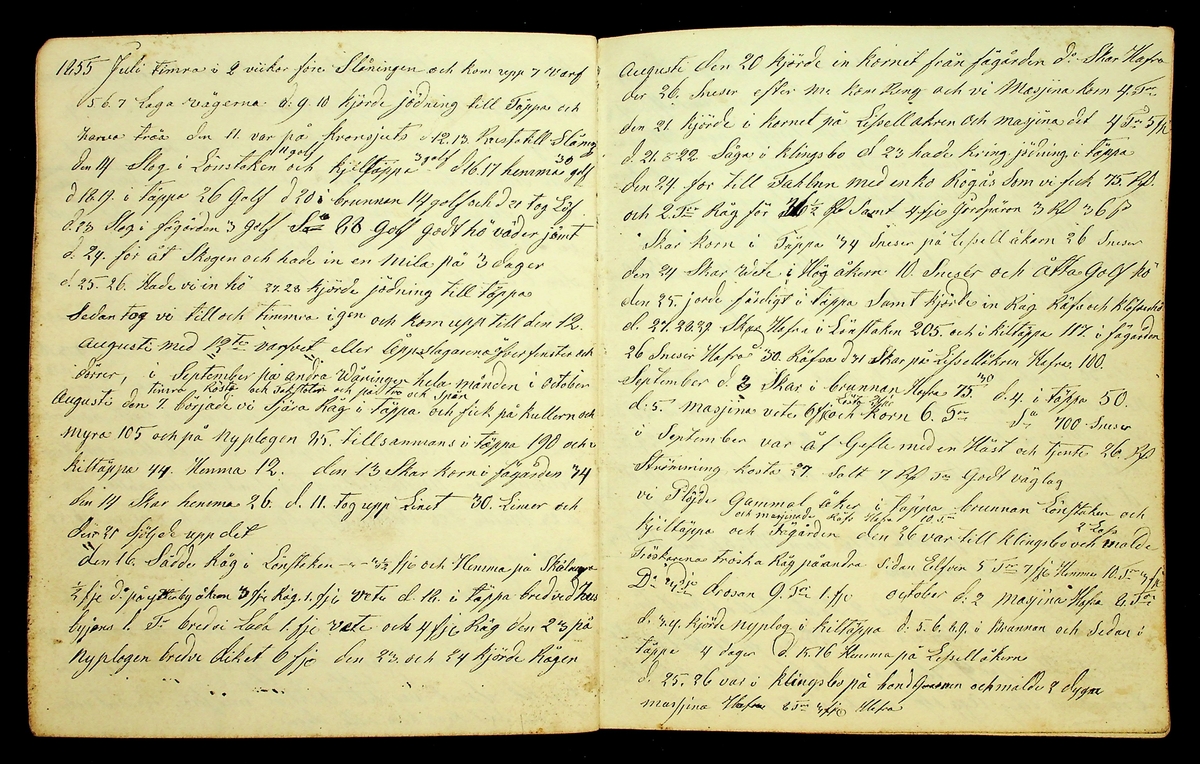 1855 Juli timra i 2 vickor före Slåningen och kom upp 7 varf
d 5 6 7 laga vägerna d. 9 10 kjörde jödning till Täppa och
harva träa den 11 var på kronsjuts d 12. 13
den 14 Slog i Lönstaken 11 golf och kjiltäppa 3 golf d 16 17 hemma 30 golf
d 18. 19. i täppa 26 Golf d 20 i brunnan 14 golf och d 21 tog Löf
d. 23 Slog i fägården 3 Golf 88 Golf godt hö väder jämt
d. 24. for åt Skogen och hade in en Mila på 3 dager
d. 25. 26. Hade vi in hö 27. 28 kjörde jödning till täppa
Sedan tog vi till och timmra igen och kom upp till den 12.
Augusti med varfvet eller fenster och
dörrer, i September på andra Våningen hela månden i october
timra Röste och och på tro och Spån
Augusti den 7. började vi Sjära Råg i täppa och fick på kullern och
Myra 105 och på Nyplogen 85. tillsammans i täppa 190 och i
kiltäppa 44. Hemma 12. den 13 Skar korn i fägården 34
den 14 Skar hemma 26. d. 11. tog upp Linet 30. Limer och
den 21 följde upp det
den 16. Sådde Råg i Lönstken fji och Hemma på
½ fji do på åkern 3 fji Råg. 1. fji vete d. 18. i täppa bredved
1. Tr bredve Lada 1 fji vete och 4 fji Råg den 23 på
Nyplogen bredve diket 6 fji den 23. och 24 kjörde Rågen
Augusti den 20 kjörde in kornet från fägården do Skar Hafra
der 26. Sneser efter me kom Rång och vi Masjina korn 4 Tr.
den 21. kjörde i kornet på Lissell åkren och masjina det 4 Tr 5 fji
d. 21. 822. Såga i klingsbo d 23 hade kring jödning i täppa
den 24 for till Fahlun med en ko Rögås Som vi fick 75. Rd
och 2 Tr Råg för Rd Samt 4 fji 3 Rd 36 s
Skar korn i Täppa 34 Sneser på Lissell åkern 26 Sneser
den 24 Skar vete i Hög åkern 10. Sneser och åtta golf hö
den 25. jorde färdigt i täppa Samt kjörde in Rag Räfsa och
d. 27. 28. 29 Skar Hafra i Lönstaken 205. och i kiltäppa 117. i fägården
26 Sneser Hafra 30. Räfsa d 31 Skar på Lissellåkren Hafra 100.
September d. 3 Skar i brunnan Hafra 75 d. 4 i täppa 50.
d. 5. masjina vete 6 fji och korn 6. Tr 700 Sneser
i September var åt Gefle med en Häst och tjente 26. Rd
Strömming koste 27. Salt 7 Rd Tr Godt väglag
vi Plöjde Gammal åker i täppa brunnan Lönstaken och
och masjinade Råfs Hafra 10. Tr 2 Lass
kjiltäppa och Fägården den 26 var till klingsbo och malde
Tröskarna tröska Råg på andra Sidan Elfven 5 Tr 7 fji Hemma 10. Tr fji
Do brosan 9. Tr 1. fji october d. 2 masjina Hafra 8. Tr
d. 3. 4. kjörde nyplog i kiltäppa d. 5. 6. 8. 9. i Brunnan och Sedan i
täppa 4 dager d. 15. 16 Hemma på Lissell åkern
d. 25. 26 var i klingsbo på bond och malde 2 dygn
masjina Hafra 8 Tr fji Hafra